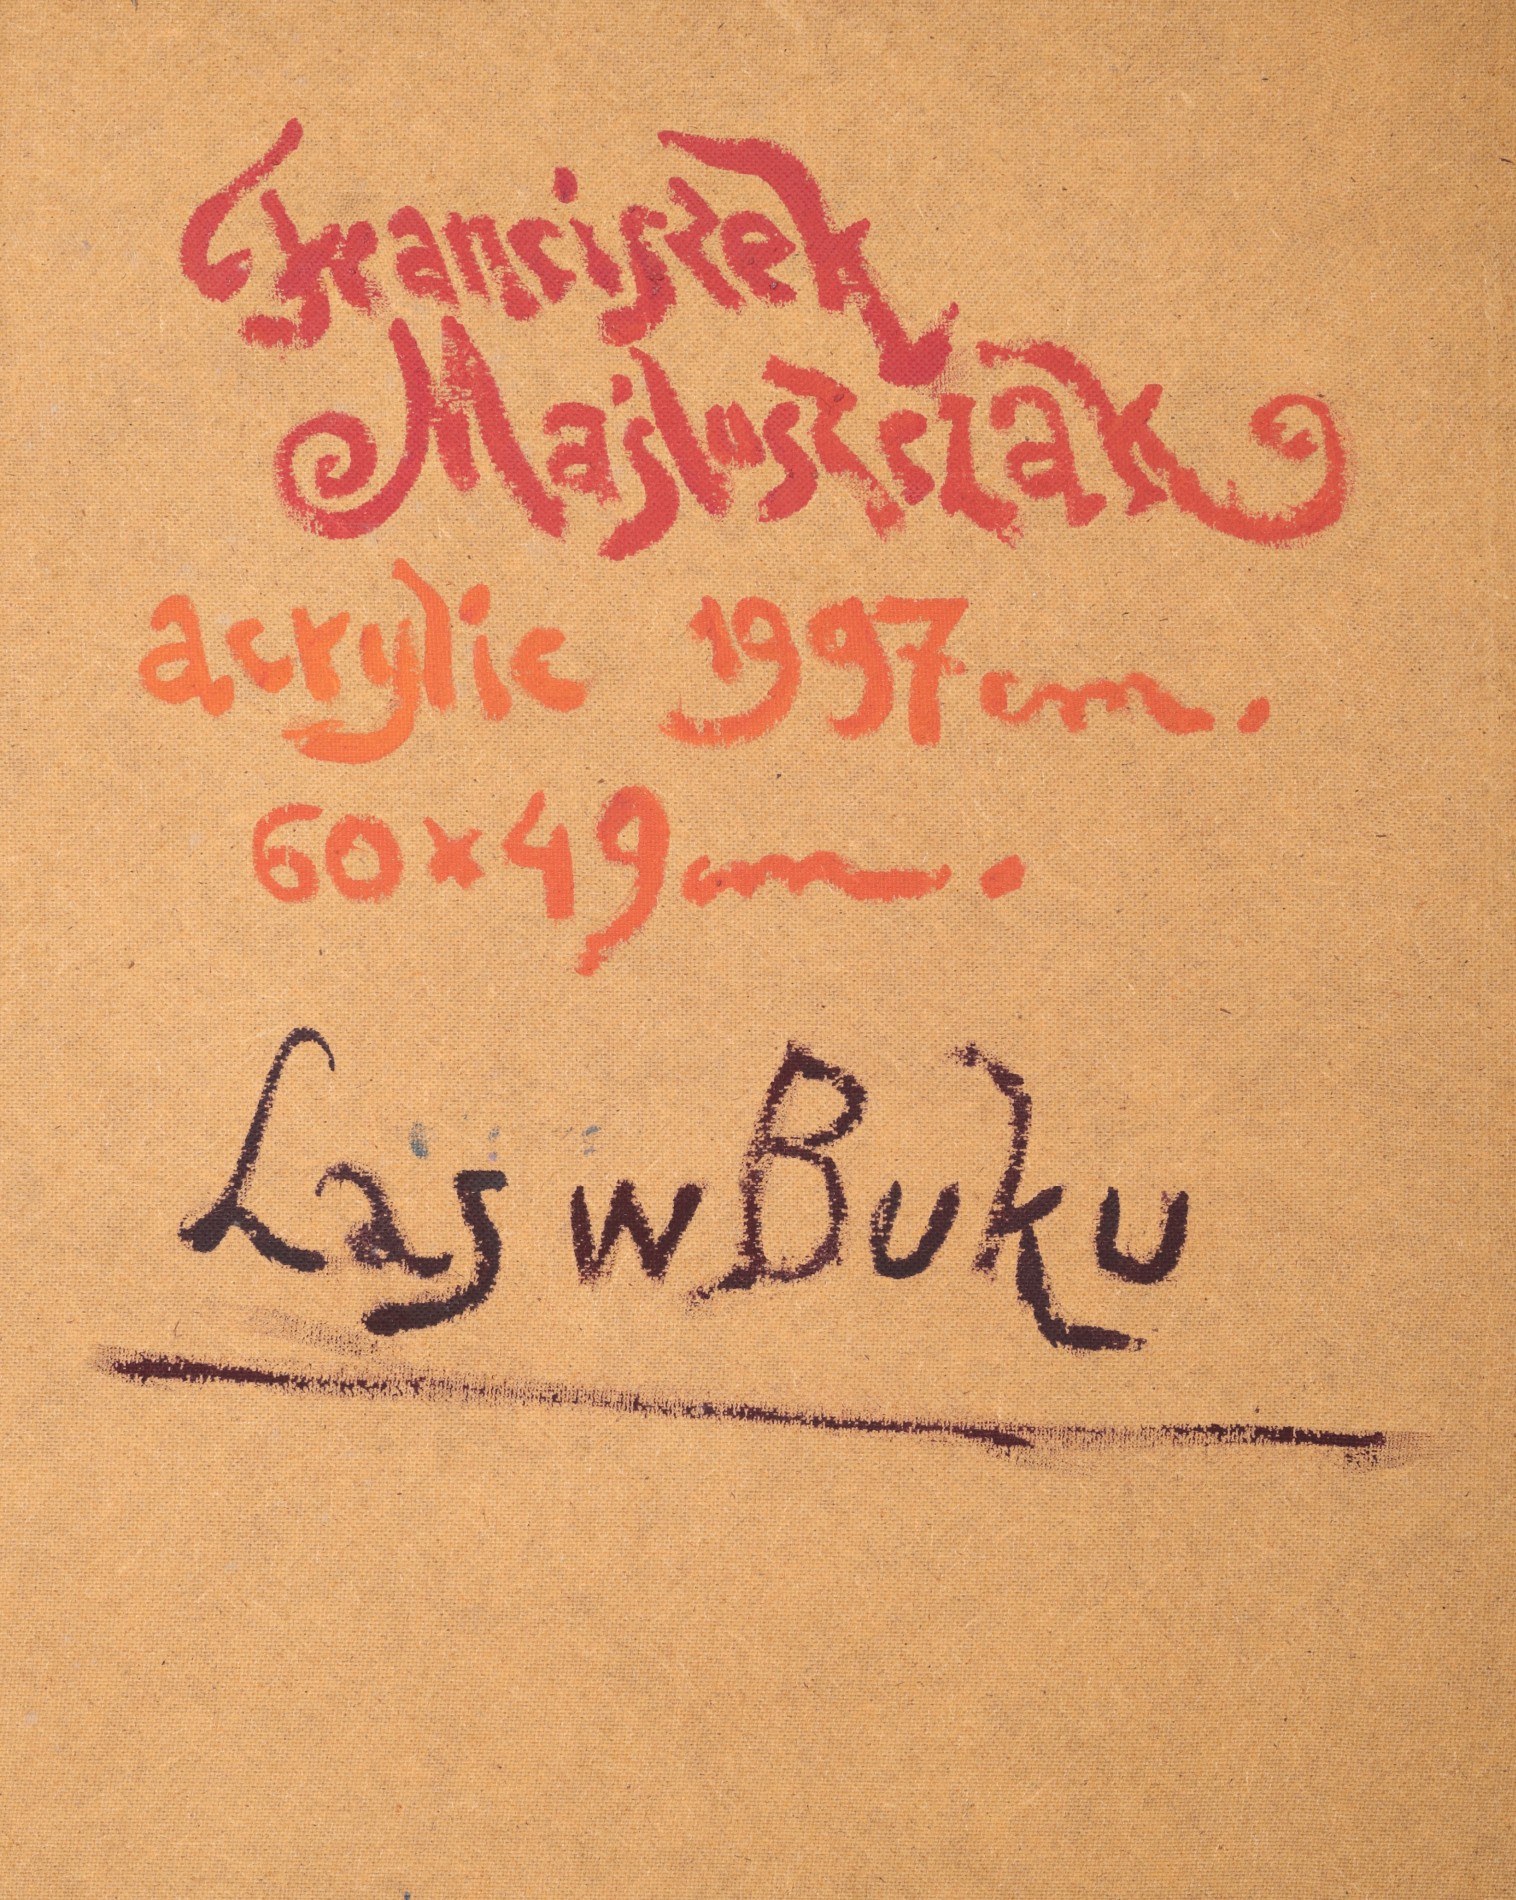 Franciszek
Maśluszczak
acrylic 1997 cm.
60x49 cm.
Las w Buku